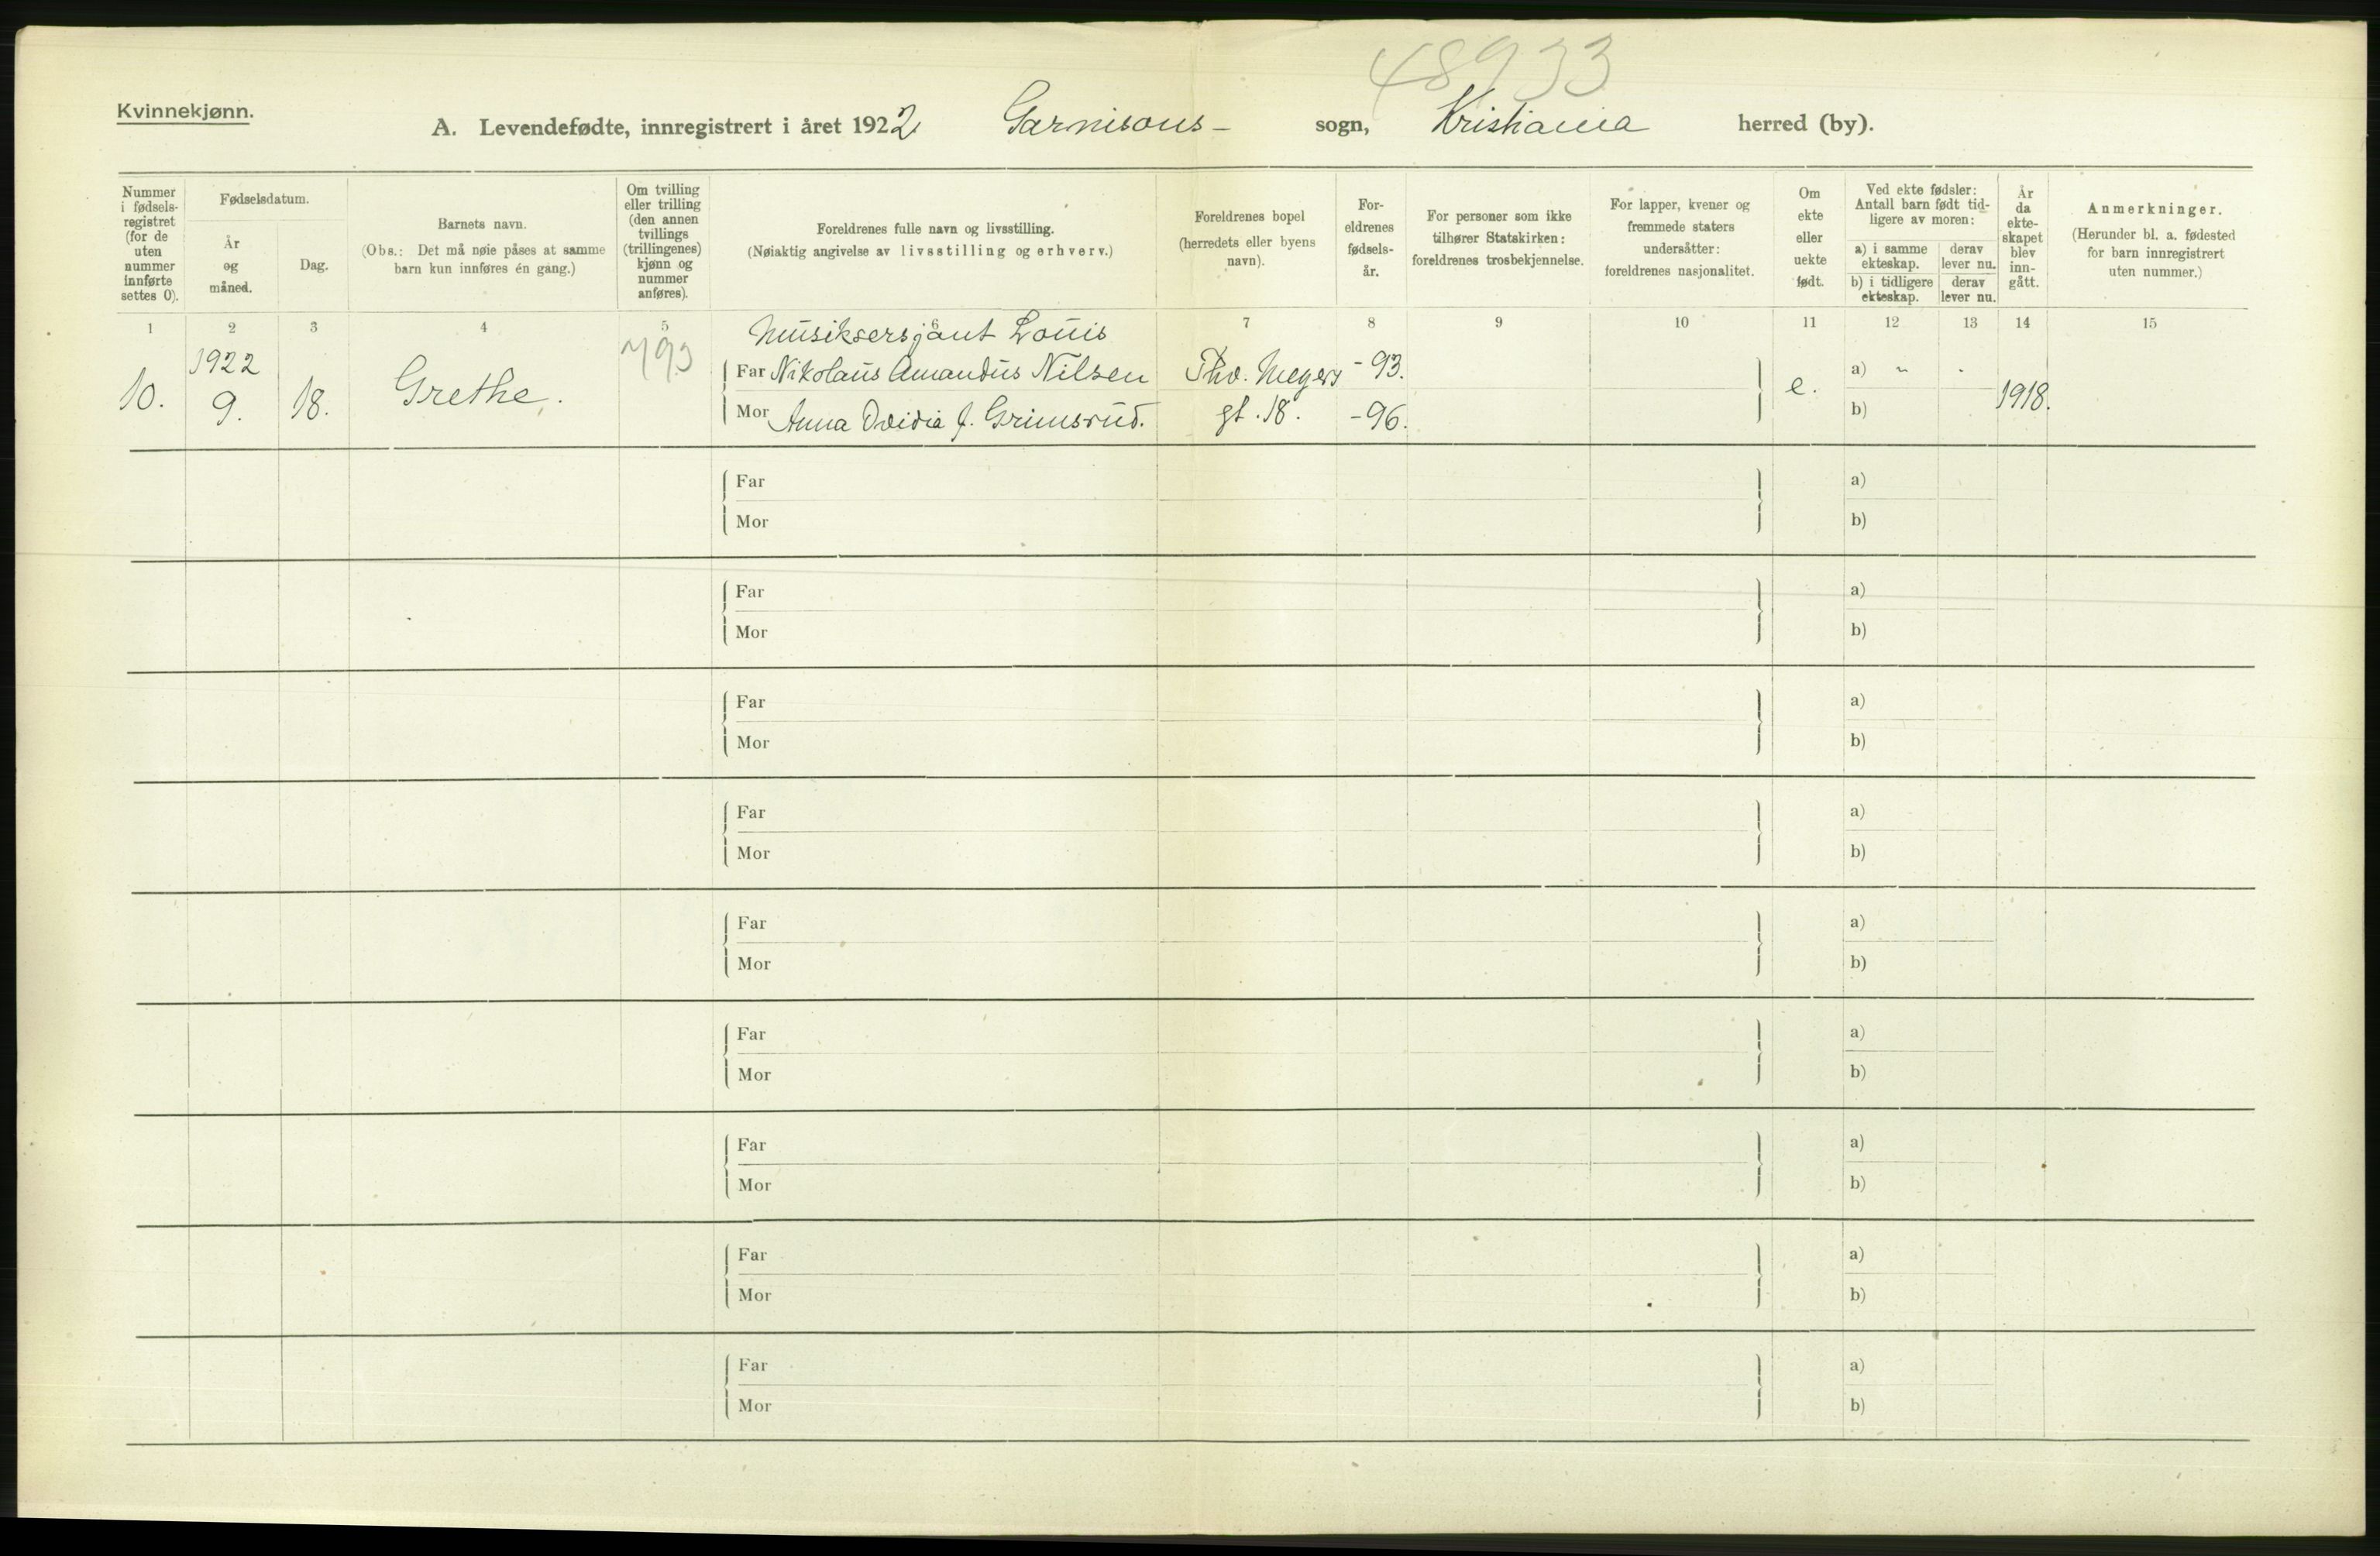 48933
Kvinnekjønn.
A. Levendefødte, innregistrert i året 1922 Garnisons- sogn, Kristiania herred (by).
Nummer i fødsels-registret (for de uten nummer innførte settes 0).
Fødselsdatum.
År og måned.
Dag.
Barnets navn.
(Obs.: Det må nøie påses at samme barn kun innføres én gang.)
Om tvilling eller trilling (den annen tvillings (trillingenes) kjønn og nummer anføres).
Foreldrenes fulle navn og livsstilling.
(Nøiaktig angivelse av livsstilling og erhverv.)
Foreldrenes bopel (herredets eller byens navn).
For-eldrenes fødsels-år.
For personer som ikke tilhører Statskirken: foreldrenes trosbekjennelse.
For lapper, kvener og fremmede staters undersåtter: foreldrenes nasjonalitet.
Om ekte eller uekte født.
Ved ekte fødsler: Antall barn født tid-ligere av moren:
a) i samme ekteskap.
derav lever nu.
b) i tidligere ekteskap.
derav lever nu.
År da ekte-skapet blev inn-gått.
Anmerkninger.
(Herunder bl. a. fødested for barn innregistrert uten nummer.)
1 2 3 4 5 6 7 8 9 10 11 12 13 14 15
Musiksersjant Louis
1922
Far Nikolaus Amandus Nilsen Thv. Meyers -93. a) " .
10. 9. 18. Grethe. e. 1918.
Mor Anna Ovidia f. Grimsrud. gt. 18. -96. b)
Far a)
Mor b)
Far a)
Mor b)
Far a)
Mor b)
Far a)
Mor b)
Far a)
Mor b)
Far a)
Mor b)
Far a)
Mor b)
Far a)
Mor b)
Far a)
Mor b)